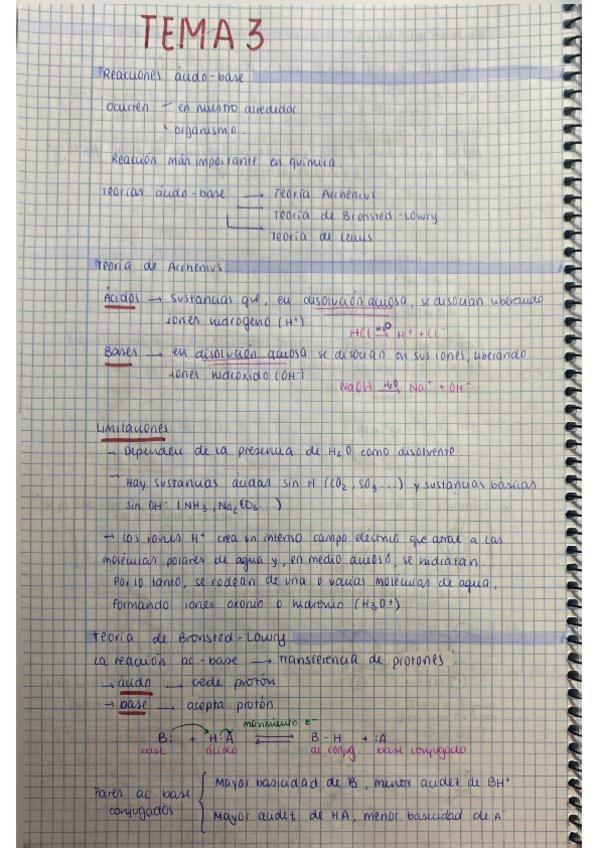 TEMA 3
Reacciones ácido-base
Ocurren - en nuestro alrededor
- organismo.
Reacción más importante en química.
Teorías ácido-base → Teoría Arrhenius
→ Teoría de Bronsted-Lowry
→ Teoría de Lewis
Teoría de Arrhenius
Ácidos → sustancias que, en disolución acuosa, se disocian liberando
iones hidrógeno (H⁺)
HCl —H₂O→ H⁺ + Cl⁻
Bases → en disolución acuosa se disocian en sus iones, liberando
iones hidróxido (OH⁻)
NaOH —H₂O→ Na⁺ + OH⁻
Limitaciones
→ Dependen de la presencia de H₂O como disolvente.
→ Hay sustancias ácidas sin H (CO₂, SO₃ ...) y sustancias básicas
sin OH⁻ (NH₃, Na₂CO₃ ...)
→ Los iones H⁺ crea un intenso campo eléctrico que atrae a las
moléculas polares de agua y, en medio acuoso, se hidratan.
Por lo tanto, se rodean de una o varias moléculas de agua,
formando iones oxonio o hidronio (H₃O⁺)
Teoría de Bronsted-Lowry
La reacción ac-base → transferencia de protones
→ ácido → cede protón
→ base → acepta protón
movimiento e⁻
B: + H-A ⇌ B-H + :A
base ácido ac conjug. base conjugado
Pares ac. base conjugados
Mayor basicidad de B, menor acidez de BH⁺
Mayor acidez de HA, menor basicidad de A⁻